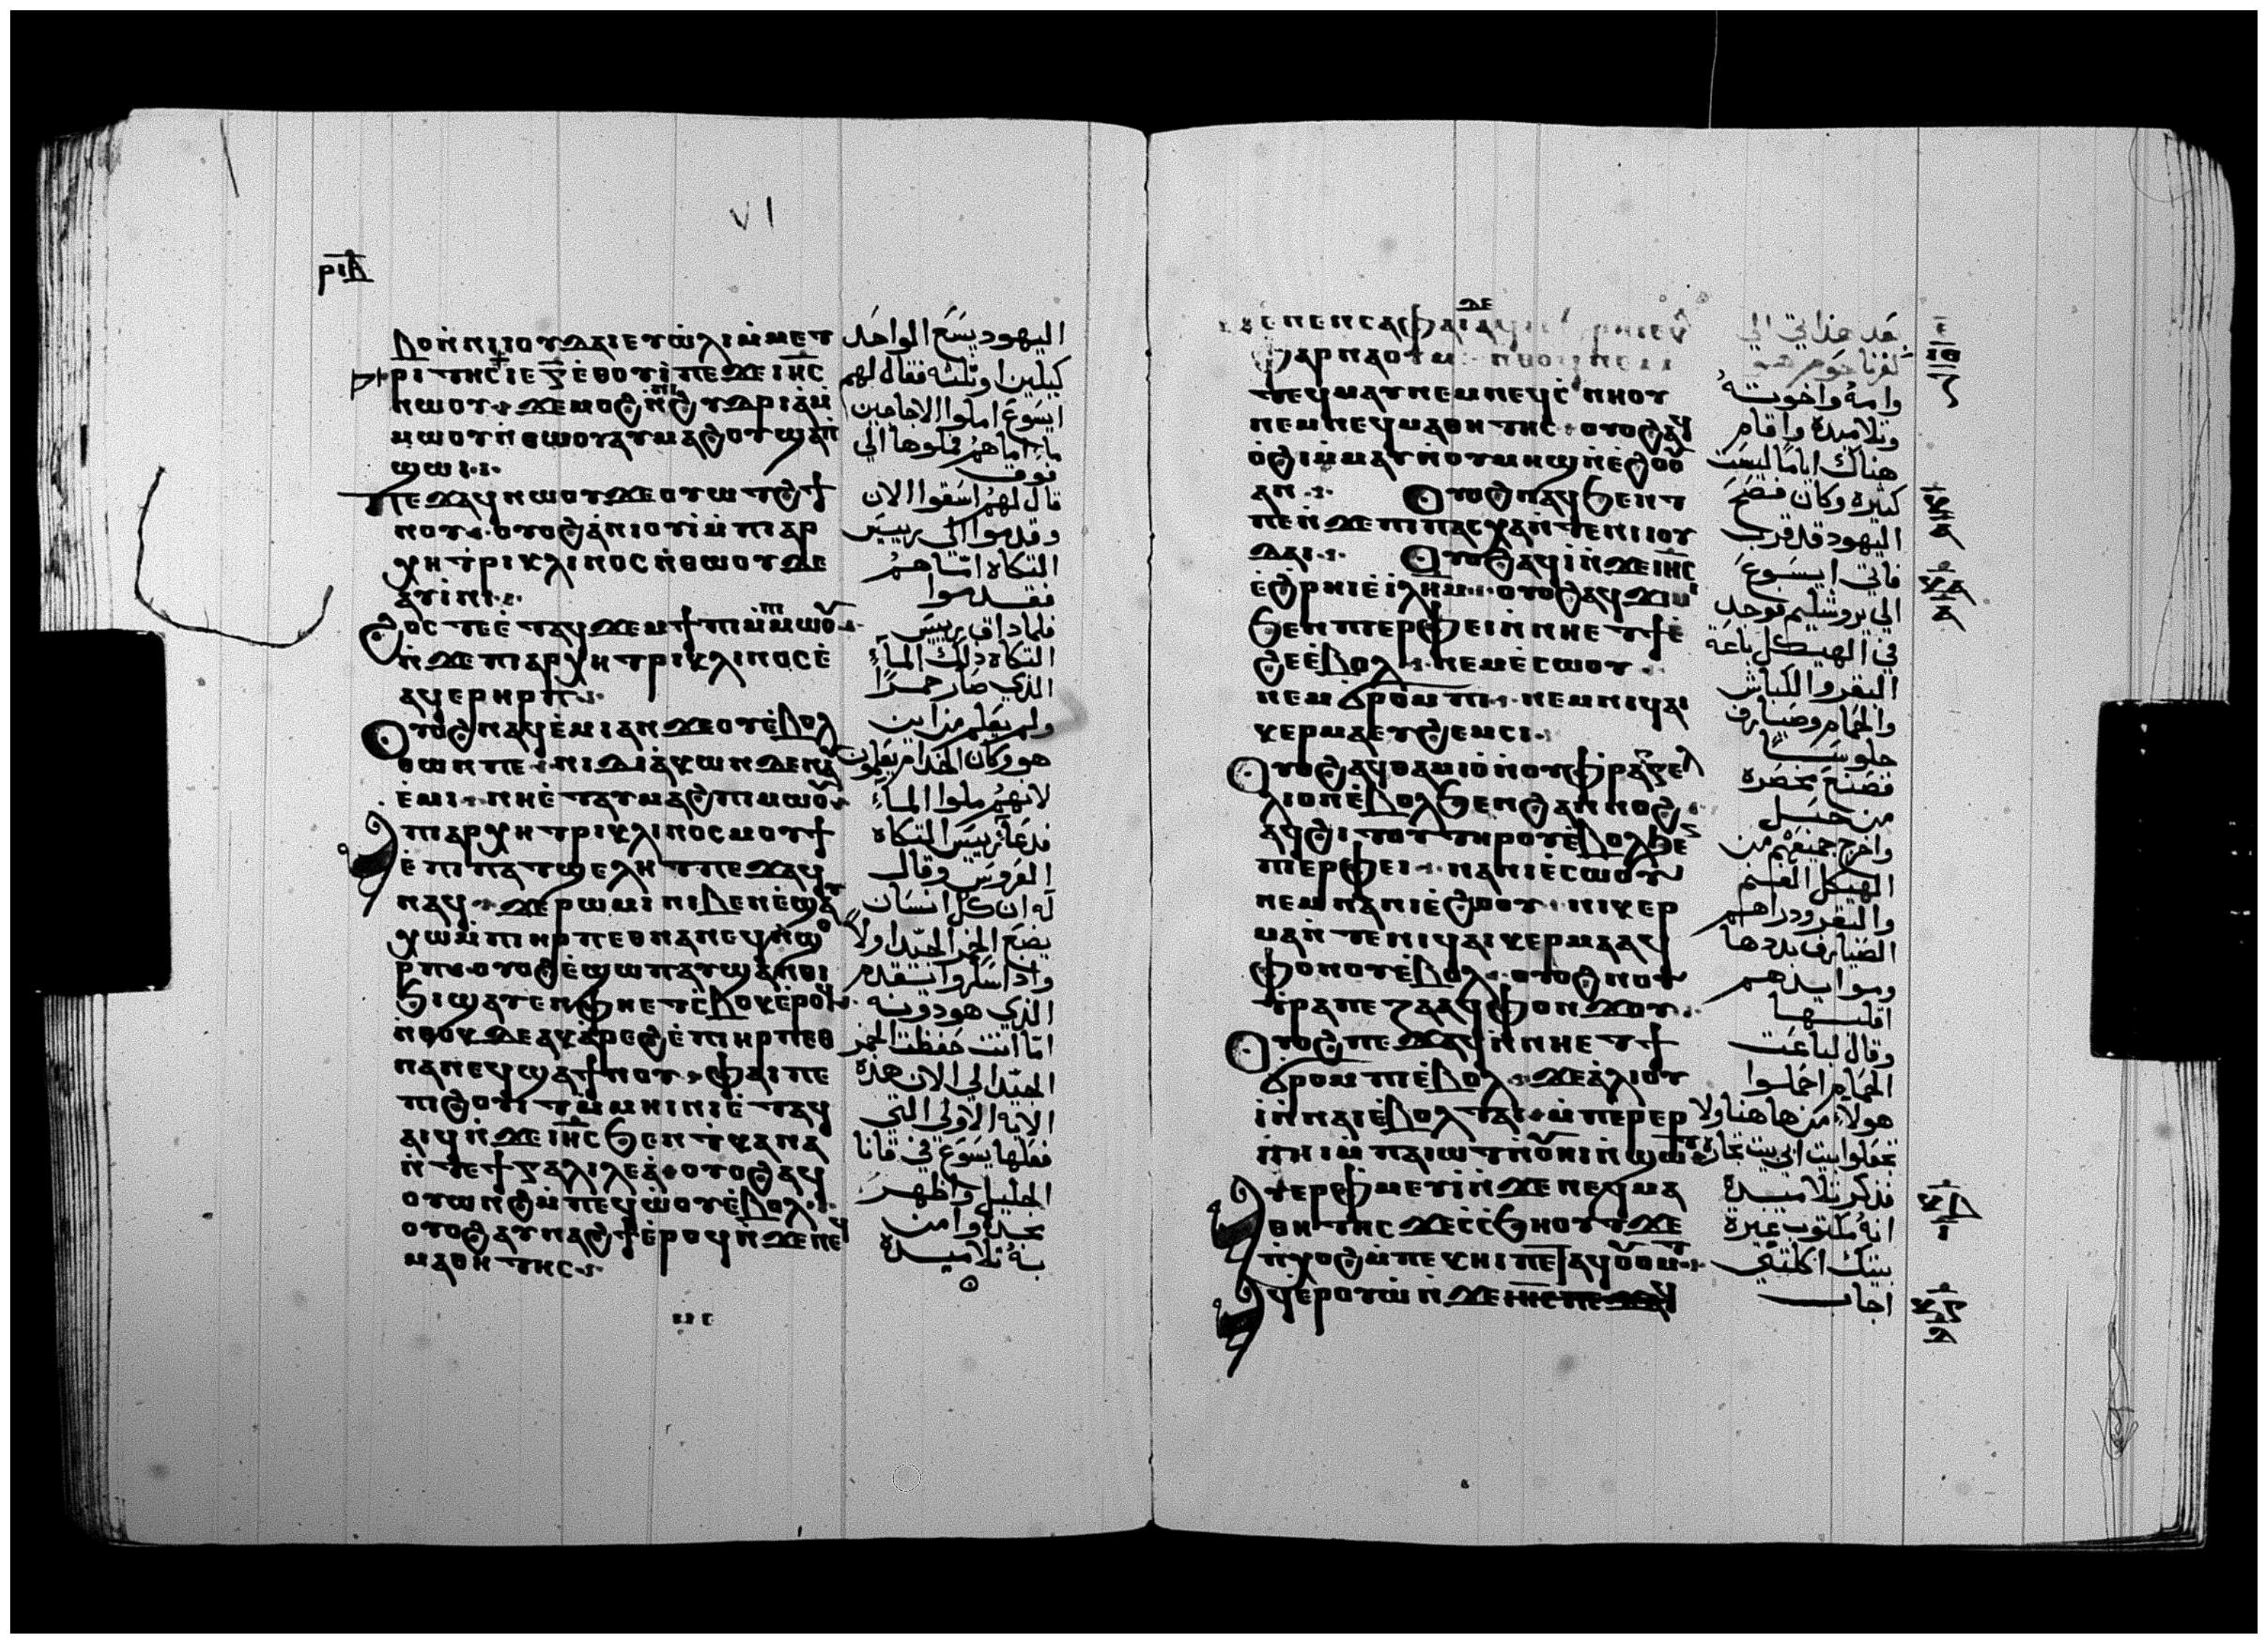 ⲣⲓⲃ
٧١
ⲃⲟⲛ̀ⲛⲓⲓⲟⲩⲇⲁⲓ ⲉⲩⲱ̀ⲗⲓⲙ̀ⲙⲉⲧ
ⲣⲓⲧⲏⲥ ⲓⲉ ⲅ̅ ⲉ̀ⲑⲟⲩⲓ̀ ⲡⲉϫⲉ ⲓⲏ̅ⲥ
ⲛⲱⲟⲩ ϫⲉ ⲙⲟϩ ⲛ̀ⲛⲓϩⲩⲇⲣⲓⲁ̀ ⲙ̀
ⲙⲱⲟⲩ ⲛ̀ⲑⲱⲟⲩ ⲁⲩⲙⲁϩⲟⲩ ϣⲁⲡ̀
ϣⲱⲓ
ⲡⲉϫⲁϥ ⲛⲱⲟⲩ ϫⲉ ⲟⲩⲱⲧϩ ϯ
ⲛⲟⲩ ⲟⲩⲟϩ ⲁ̀ⲛⲓⲟⲩⲓ̀ ⲙ̀ⲡⲓⲁⲣ
ⲭⲏⲧⲣⲓⲕⲗⲓⲛⲟⲥ ⲛ̀ⲑⲱⲟⲩ ⲇⲉ
ⲁⲩⲓ̀ⲛⲓ
ϩⲟⲥⲧⲉ ⲉ̀ⲧⲁϥϫⲉⲙϯⲡⲓ ⲙ̀ⲡⲓⲙⲱⲟⲩ
ⲛ̀ϫⲉ ⲡⲓⲁⲣⲭⲏⲧⲣⲓⲕⲗⲓⲛⲟⲥ ⲉ̀
ⲁϥⲉⲣⲏⲣⲡ
ⲟⲩⲟϩ ⲛⲁϥⲉ̀ⲙⲓ ⲁⲛ ϫⲉ ⲟⲩⲉ̀ⲃⲟⲗ
ⲑⲱⲛ ⲡⲉ ⲛⲓⲇⲓⲁ̀ⲕⲱⲛ ⲇⲉ ⲛⲁⲩ
ⲉ̀ⲙⲓ ⲛⲏ ⲉ̀ⲧⲁⲩⲙⲁϩ ⲡⲓⲙⲱⲟⲩ
ⲁ ⲡⲓⲁⲣⲭⲏⲧⲣⲓⲕⲗⲓⲛⲟⲥ ⲙⲟⲩϯ
ⲉ̀ⲡⲓⲡⲁⲧϣⲉⲗⲏⲧ ⲡⲉϫⲁϥ
ⲛⲁϥ ϫⲉ ⲣⲱⲙⲓ ⲛⲓⲃⲉⲛ ⲉ̀ϣⲁⲩ
ⲭⲱ ⲙ̀ⲡⲓⲏⲣⲡ ⲉⲑⲛⲁⲛⲉϥ ⲛ̀ϣⲟ
ⲣⲡ ⲟⲩⲟϩ ⲉ̀ϣⲱⲡ ⲁⲩϣⲁⲛⲑⲓ
ϧⲓ ϣⲁⲩⲉⲛ ⲫⲏ ⲉⲧⲥ̀ⲃⲟⲕ ⲉ̀ⲣⲟϥ
ⲛ̀ⲑⲟⲕ ⲇⲉ ⲁⲕⲁ̀ⲣⲉϩ ⲉ̀ⲡⲓⲏⲣⲡ ⲉⲑ
ⲛⲁⲛⲉϥ ϣⲁ ϯⲛⲟⲩ ⲫⲁⲓ ⲡⲉ
ⲡⲓϩⲟⲩⲓⲧ ⲙ̀ⲙⲏⲓⲛⲓ ⲉ̀ⲧⲁϥ
ⲁⲓϥ ⲛ̀ϫⲉ ⲓⲏ̅ⲥ ϧⲉⲛ ⲧ̀ⲕⲁⲛⲁ
ⲛ̀ⲧⲉ ϯⲅⲁⲗⲓⲗⲉⲁ̀ ⲟⲩⲟϩ ⲁϥ
ⲟⲩⲱⲛϩ ⲙ̀ⲡⲉϥⲱ̀ⲟⲩ ⲉ̀ⲃⲟⲗ
ⲟⲩⲟϩ ⲁⲩⲛⲁϩϯ ⲉ̀ⲣⲟϥ ⲛ̀ϫⲉ ⲛⲉϥ
ⲙⲁⲑⲏⲧⲏⲥ
اليهود يسع الواحد
كيلين او ثلثه فقال لهم
ايسوع املوا الاجاجين
ماء اما هم فملوها الي
فوق
قال لهم اسقوا الان
وقدموا الي رييس
التكاه امّا هم
فقدموا
فلما داق رييس
التكاه ذلك الماء
الذي صار خمراً
ولم يعلم من اين
هو وكان الخدام يعلمون
لانهم ملوا الماء
فدعا رييس التكاه
العروس وقال
له ان كل انسان
يضع الخمر الجيّد اولاً
واذا سكروا يتقدم
الذي هو دونه
امّا انت حفظت الخمر
الجيّد الي الان هذه
الايه الاولي التي
فعلها يسوع في قانا
الجليل واظهر
مجده وامن
به تلاميذه
ⲙⲉⲛⲉⲛⲥⲁ ⲫⲁⲓ ⲇⲉ ⲁϥⲓ̀ ⲉ̀ϧⲣⲏⲓ ⲉ̀
ⲕⲁⲫⲁⲣⲛⲁⲟⲩⲙ ⲛ̀ⲑⲟϥ ⲛⲉⲙ
ⲧⲉϥⲙⲁⲩ ⲛⲉⲙ ⲛⲉϥⲥ̀ⲛⲏⲟⲩ
ⲛⲉⲙ ⲛⲉϥⲙⲁⲑⲏⲧⲏⲥ ⲟⲩⲟϩ ⲁϥ
ⲟ̀ϩⲓ ⲙ̀ⲙⲁⲩ ⲛ̀ⲟⲩⲙⲏϣ ⲛ̀ⲉ̀ϩⲟⲟⲩ
ⲁⲛ ⲟⲩⲟϩ ⲛⲁϥϧⲉⲛⲧ
ⲡⲉ ⲛ̀ϫⲉ ⲡⲓⲡⲁⲥⲭⲁ ⲛ̀ⲧⲉ ⲛⲓⲓⲟⲩ
ⲇⲁⲓ ⲟⲩⲟϩ ⲁϥⲓ̀ ⲛ̀ϫⲉ ⲓⲏ̅ⲥ
ⲉ̀ϩⲣⲏⲓ ⲉ̀ⲓ̅ⲗ̅ⲏ̅ⲙ̅ ⲟⲩⲟϩ ⲁϥϫⲓⲙⲓ
ϧⲉⲛ ⲡⲓⲉⲣⲫⲉⲓ ⲛ̀ⲛⲏ ⲉⲧϯ ⲉ̀
ϩⲉ ⲉ̀ⲃⲟⲗ ⲛⲉⲙ ⲉ̀ⲥⲱⲟⲩ
ⲛⲉⲙ ϭⲣⲟⲙⲡⲓ ⲛⲉⲙ ⲛⲓϥⲁⲓ
ⲕⲉⲣⲙⲁ ⲉⲩϩⲉⲙⲥⲓ
ⲟⲩⲟϩ ⲁϥⲑⲁⲙⲓⲟ̀ ⲛ̀ⲟⲩⲫⲣⲁⲅⲉⲗ
ⲗⲓⲟⲛ ⲉ̀ⲃⲟⲗ ϧⲉⲛ ϩⲁⲛⲛⲟϩ
ⲁϥϩⲓⲧⲟⲩ ⲧⲏⲣⲟⲩ ⲉ̀ⲃⲟⲗ ϧⲉⲛ
ⲡⲓⲉⲣⲫⲉⲓ ⲛⲁⲛⲓⲉ̀ⲥⲱⲟⲩ
ⲛⲉⲙ ⲛⲁⲛⲓⲉ̀ϩⲱⲟⲩ ⲛⲓⲕⲉⲣ
ⲙⲁ ⲛ̀ⲧⲉ ⲛⲓϥⲁⲓⲕⲉⲣⲙⲁ ⲁϥ
ⲫⲟⲛⲟⲩ ⲉ̀ⲃⲟⲗ ⲟⲩⲟϩ ⲛⲟⲩ
ⲧⲣⲁⲡⲉⲍⲁ ⲁϥⲫⲟⲛϫⲟⲩ
ⲟⲩⲟϩ ⲡⲉϫⲁϥ ⲛ̀ⲛⲏ ⲉⲧϯ
ϭⲣⲟⲙⲡⲓ ⲉ̀ⲃⲟⲗ ϫⲉ ⲁ̀ⲗⲓⲟⲩ
ⲓ̀ ⲛ̀ⲛⲁⲓ ⲉ̀ⲃⲟⲗ ⲧⲁⲓ ⲙ̀ⲡⲉⲣⲉⲣ
ⲡ̀ⲏⲓ ⲙ̀ⲡⲁⲓⲱⲧ ⲛ̀ⲟⲩⲏⲓ ⲛ̀ϣⲱⲧ
ⲁⲩⲉⲣⲫⲙⲉⲩⲓ̀ ⲛ̀ϫⲉ ⲛⲉϥⲙⲁ
ⲑⲏⲧⲏⲥ ϫⲉ ⲥ̀ⲥϧⲏⲟⲩⲧ ϫⲉ
ⲡ̀ⲭⲟϩ ⲙ̀ⲡⲉⲕⲏⲓ ⲡⲉⲧⲁϥⲟⲩⲟⲙⲧ
ⲁϥⲉⲣⲟⲩⲱ̀ ⲛ̀ϫⲉ
بعد هذا اتي الي
كفرناحوم هو
وامهُ واخوتهُ
وتلاميذه واقام
هناك اياماً ليست
كثيرة وكان فصح
اليهود قد قرب
فاتي ايسوع
الي يروشليم فوجد
في الهيكل باعة
البقر والكباش
والحمام وصيارف
جلوساً
فصنع مخصرة
من حبل
واخرج جميعهم من
الهيكل الغنم
والبقر ودراهم
الصيارف بددها
وموايدهم
اقلبها
وقال لباعت
الحمام احملوا
هولاء من هاهنا ولا
تجعلوا بيت ابي بيت تجارة
فذكر تلاميذه
انهُ مكتوب غيرة
بيتك اكلتني
اجاب
ⲓⲑ
ⲕ
ⲕⲁ
ⲕⲃ
ⲕⲅ